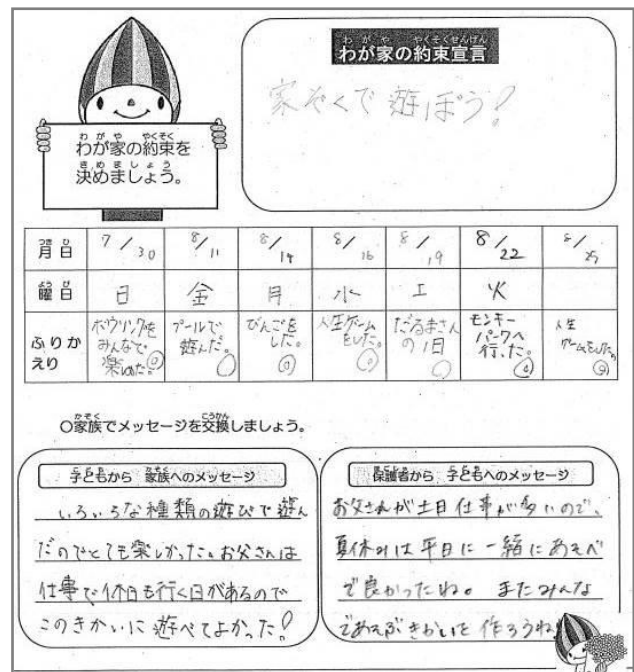 わが家の約束を
決めましょう。
わが家の約束宣言
家ぞくで遊ぼう!
月日 7/30 8/11 8/14 8/16 8/19 8/22 8/25
曜日 日 金 月 水 土 火
ふりかえり
ボウリングをみんなで楽しめた。
プールで遊んだ。
びんごをした。
人生ゲームをした。
だるまさんの1日
モンキーパークへ行った。
人生ゲームをした。
○家族でメッセージを交換しましょう。
子どもから 家族へのメッセージ
いろいろな種類の遊びで遊ん
だのでとても楽しかった。お父さんは
仕事で休日も行く日があるので
このきかいに遊べてよかった!
保護者から 子どもへのメッセージ
お父さんが土日仕事が多いので、
夏休みは平日に一緒にあそべ
て良かったね。またみんな
であそぶきかいを作ろうね